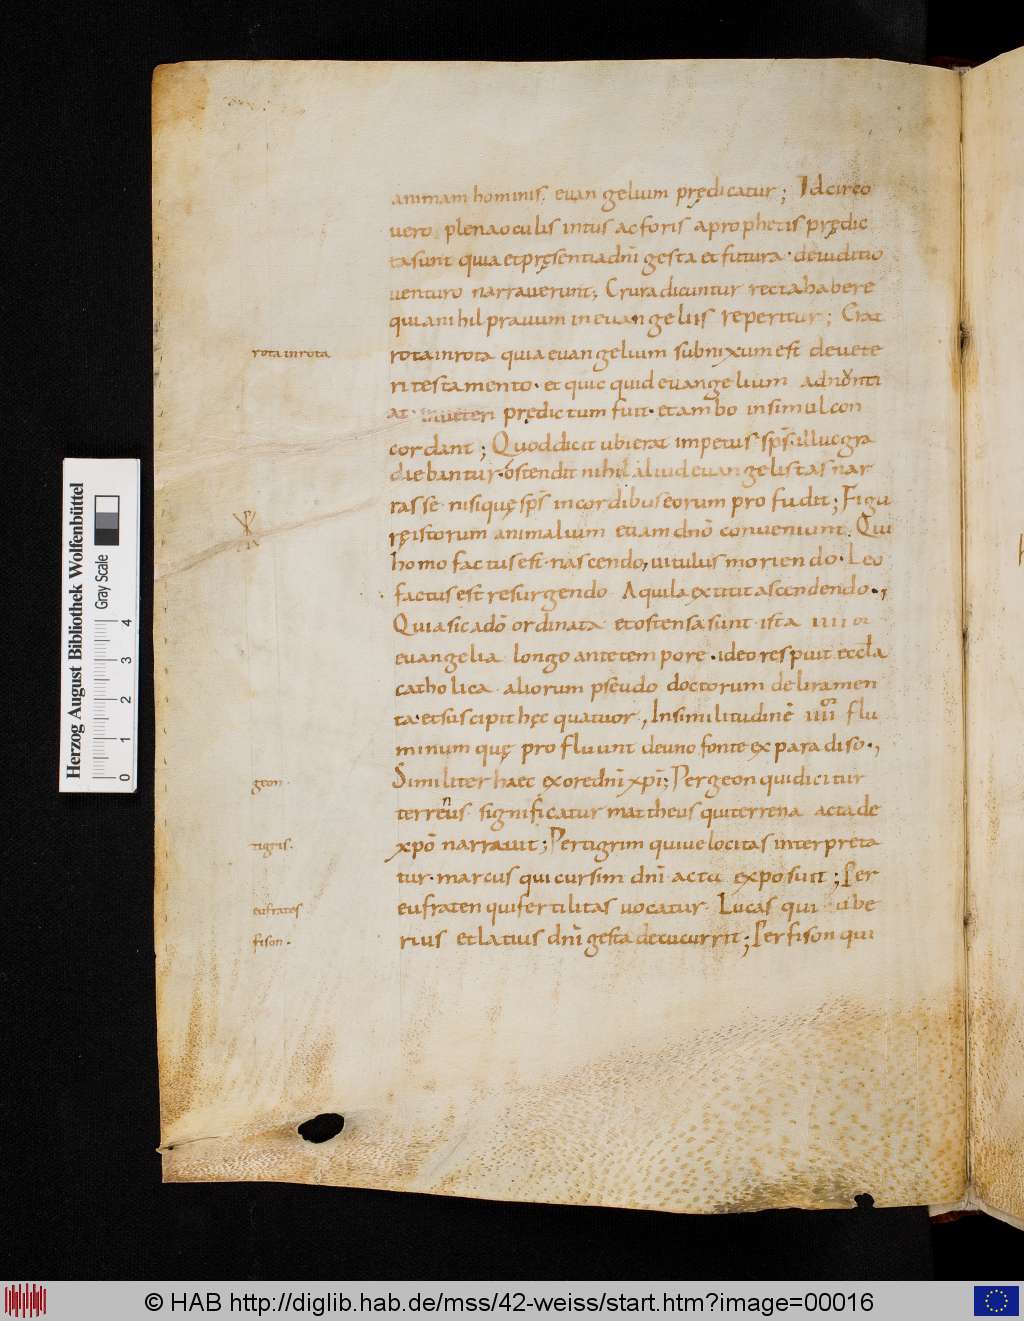 animam hominis. euangelium prędicatur; Idcirco
uero plena oculis intus ac foris a prophetis prędic
ta sunt quia et pręsentia dn̄i gesta et futura. de iuditio
uenturo narrauerunt; Crura dicuntur recta habere
quia nihil prauum in euangeliis reperitur; Erat
rota in rota
rota in rota quia euangelium subnixum est de uete
ri testamento. et quicquid euangelium adnunti
at. in ueteri prędictum fuit. et ambo in simul con
cordant; Quod dicit ubi erat impetus sps̄. illuc gra
diebantur. ostendit nihil aliud euangelistas nar
rasse nisi quę sps̄ in cordibus eorum profudit; Figu
rę istorum animalium etiam dn̄o conueniunt. Qui
homo factus est nascendo, uitulus moriendo. Leo
factus est resurgendo. Aquila extitit ascendendo.,
Quia sic a dō ordinata et ostensa sunt ista iiii or
euangelia longo ante tempore. ideo respuit eccla
catholica aliorum pseudo doctorum deliramen
ta. et suscipit hęc quatuor, In similitudinē iiii or flu
minum quę profluunt de uno fonte ex paradiso.,
geon.
Similiter haec ex ore dn̄i xpi; Per geon qui dicitur
terrenus significatur mattheus qui terrena acta de
tigris.
xpō narrauit; Per tigrim qui uelocitas interpreta
tur. marcus qui cursim dn̄i acta exposuit; Per
eufrates
eufraten qui fertilitas uocatur. Lucas qui ube
fison.
rius et latius dn̄i gesta decucurrit; Per fison qui
Herzog August Bibliothek Wolfenbüttel
Gray Scale
0 1 2 3 4
© HAB http://diglib.hab.de/mss/42-weiss/start.htm?image=00016